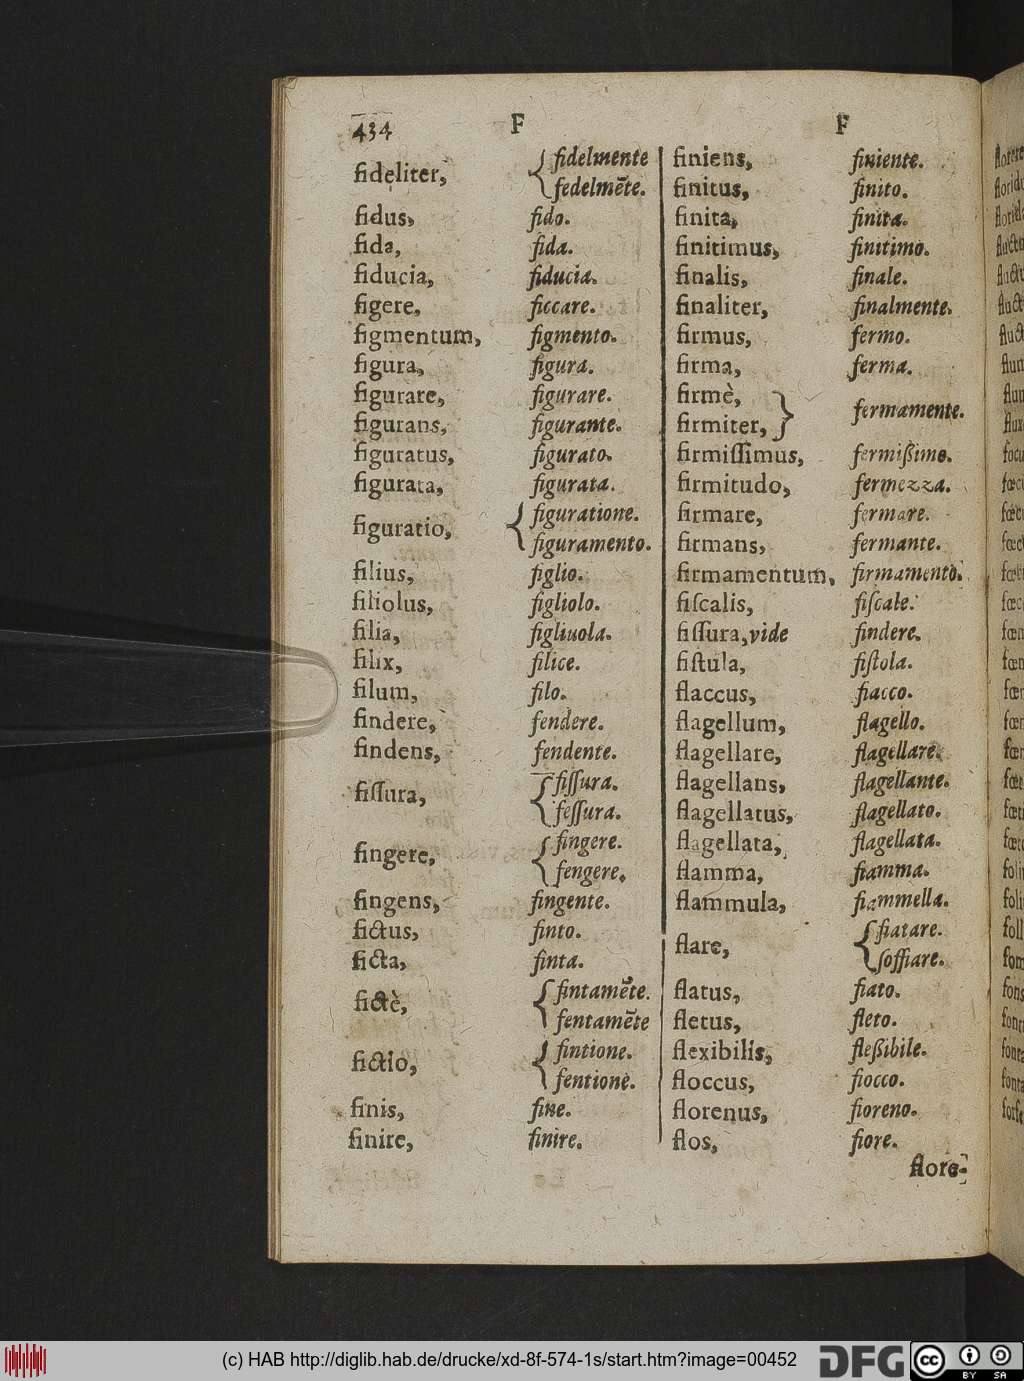 434 F F
fideliter, { fidelmente
fedelmēte.
fidus, fido.
fida, fida.
fiducia, fiducia.
figere, ficcare.
figmentum, figmento.
figura, figura.
figurare, figurare.
figurans, figurante.
figuratus, figurato.
figurata, figurata.
figuratio, { figuratione.
figuramento.
filius, figlio.
filiolus, figliolo.
filia, figliuola.
filix, filice.
filum, filo.
findere, fendere.
findens, fendente.
fiſſura, { fiſſura.
feſſura.
fingere, { fingere.
fengere.
fingens, fingente.
fictus, finto.
ficta, finta.
fictè, { fintamēte.
fentamēte
fictio, { fintione.
fentione.
finis, fine.
finire, finire.
finiens, finiente.
finitus, finito.
finita, finita.
finitimus, finitimo.
finalis, finale.
finaliter, finalmente.
firmus, fermo.
firma, ferma.
firmè,
firmiter, } fermamente.
firmiſſimus, fermißimo.
firmitudo, fermezza.
firmare, fermare.
firmans, fermante.
firmamentum, firmamento.
fiſcalis, fiſcale.
fiſſura, vide findere.
fiſtula, fiſtola.
flaccus, fiacco.
flagellum, flagello.
flagellare, flagellare.
flagellans, flagellante.
flagellatus, flagellato.
flagellata, flagellata.
flamma, fiamma.
flammula, fiammella.
flare, { fiatare.
ſoffiare.
flatus, fiato.
fletus, fleto.
flexibilis, fleßibile.
floccus, fiocco.
florenus, fioreno.
flos, fiore.
flore-
(c) HAB http://diglib.hab.de/drucke/xd-8f-574-1s/start.htm?image=00452
DFG
cc BY SA